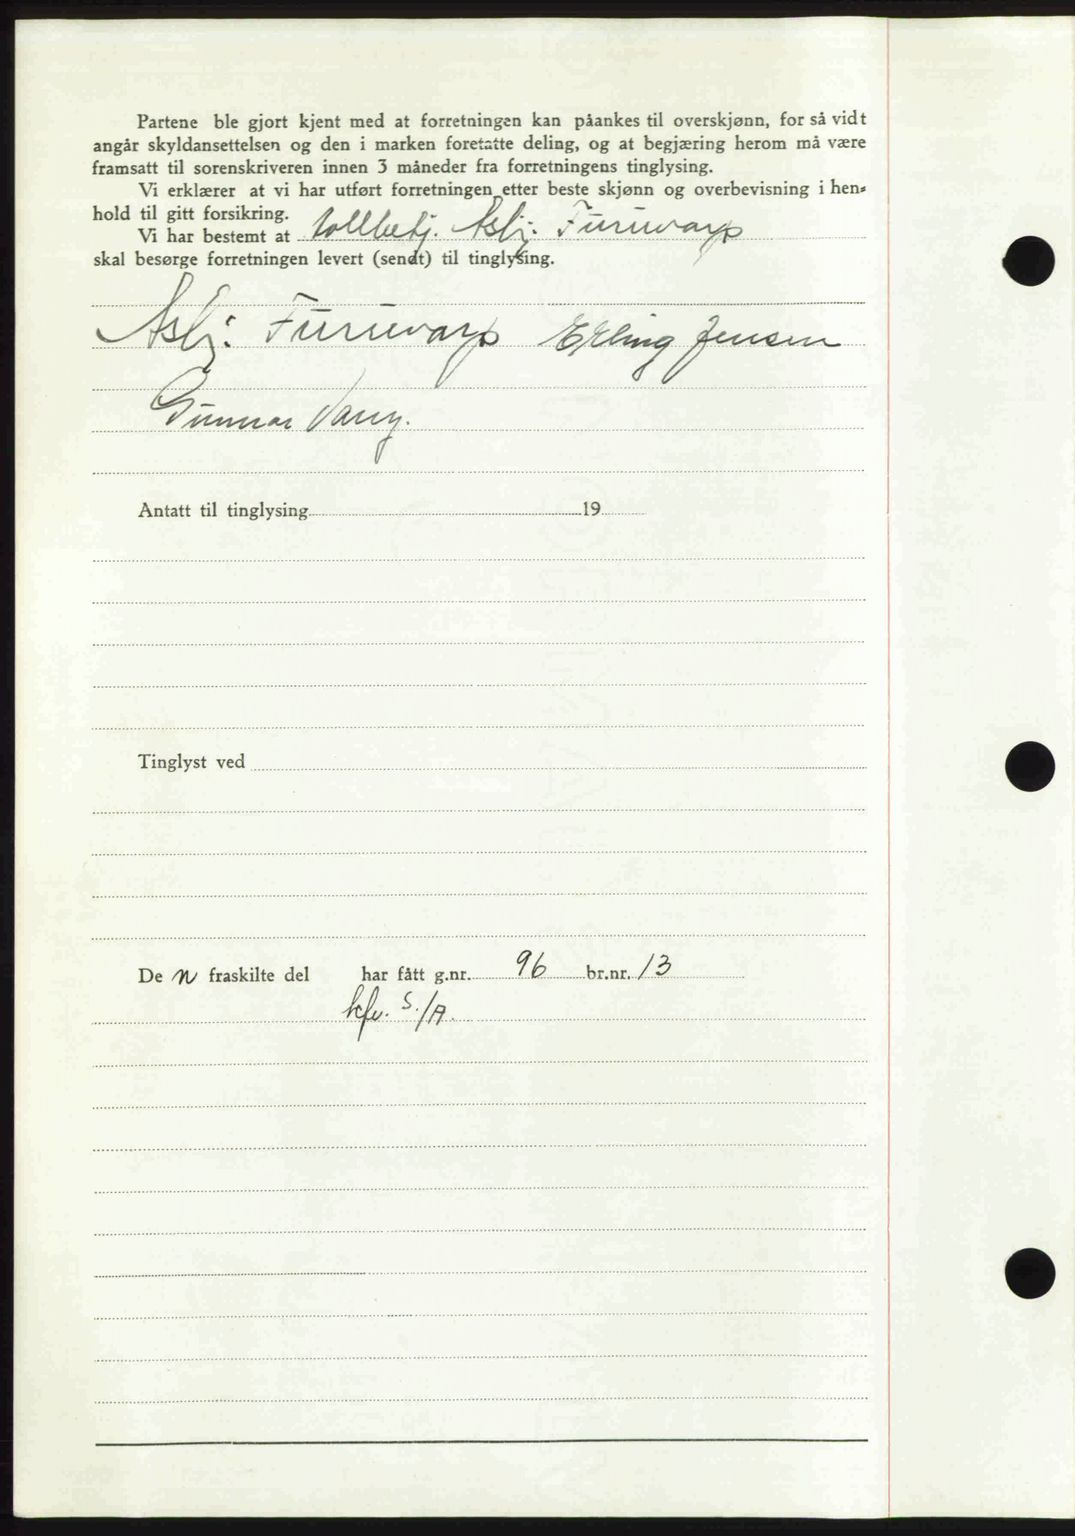 Partene ble gjort kjent med at forretningen kan påankes til overskjønn, for så vidt
angår skyldansettelsen og den i marken foretatte deling, og at begjæring herom må være
framsatt til sorenskriveren innen 3 måneder fra forretningens tinglysing.
Vi erklærer at vi har utført forretningen etter beste skjønn og overbevisning i hen-
hold til gitt forsikring.
Vi har bestemt at tollbetj. Asbj. Furuvarp
skal besørge forretningen levert (sendt) til tinglysing.
Asbj. Furuvarp Erling Jensen
Gunnar Vang.
Antatt til tinglysing 19
Tinglyst ved
De n fraskilte del har fått g.nr. 96 br.nr. 13
kfv. S./A.